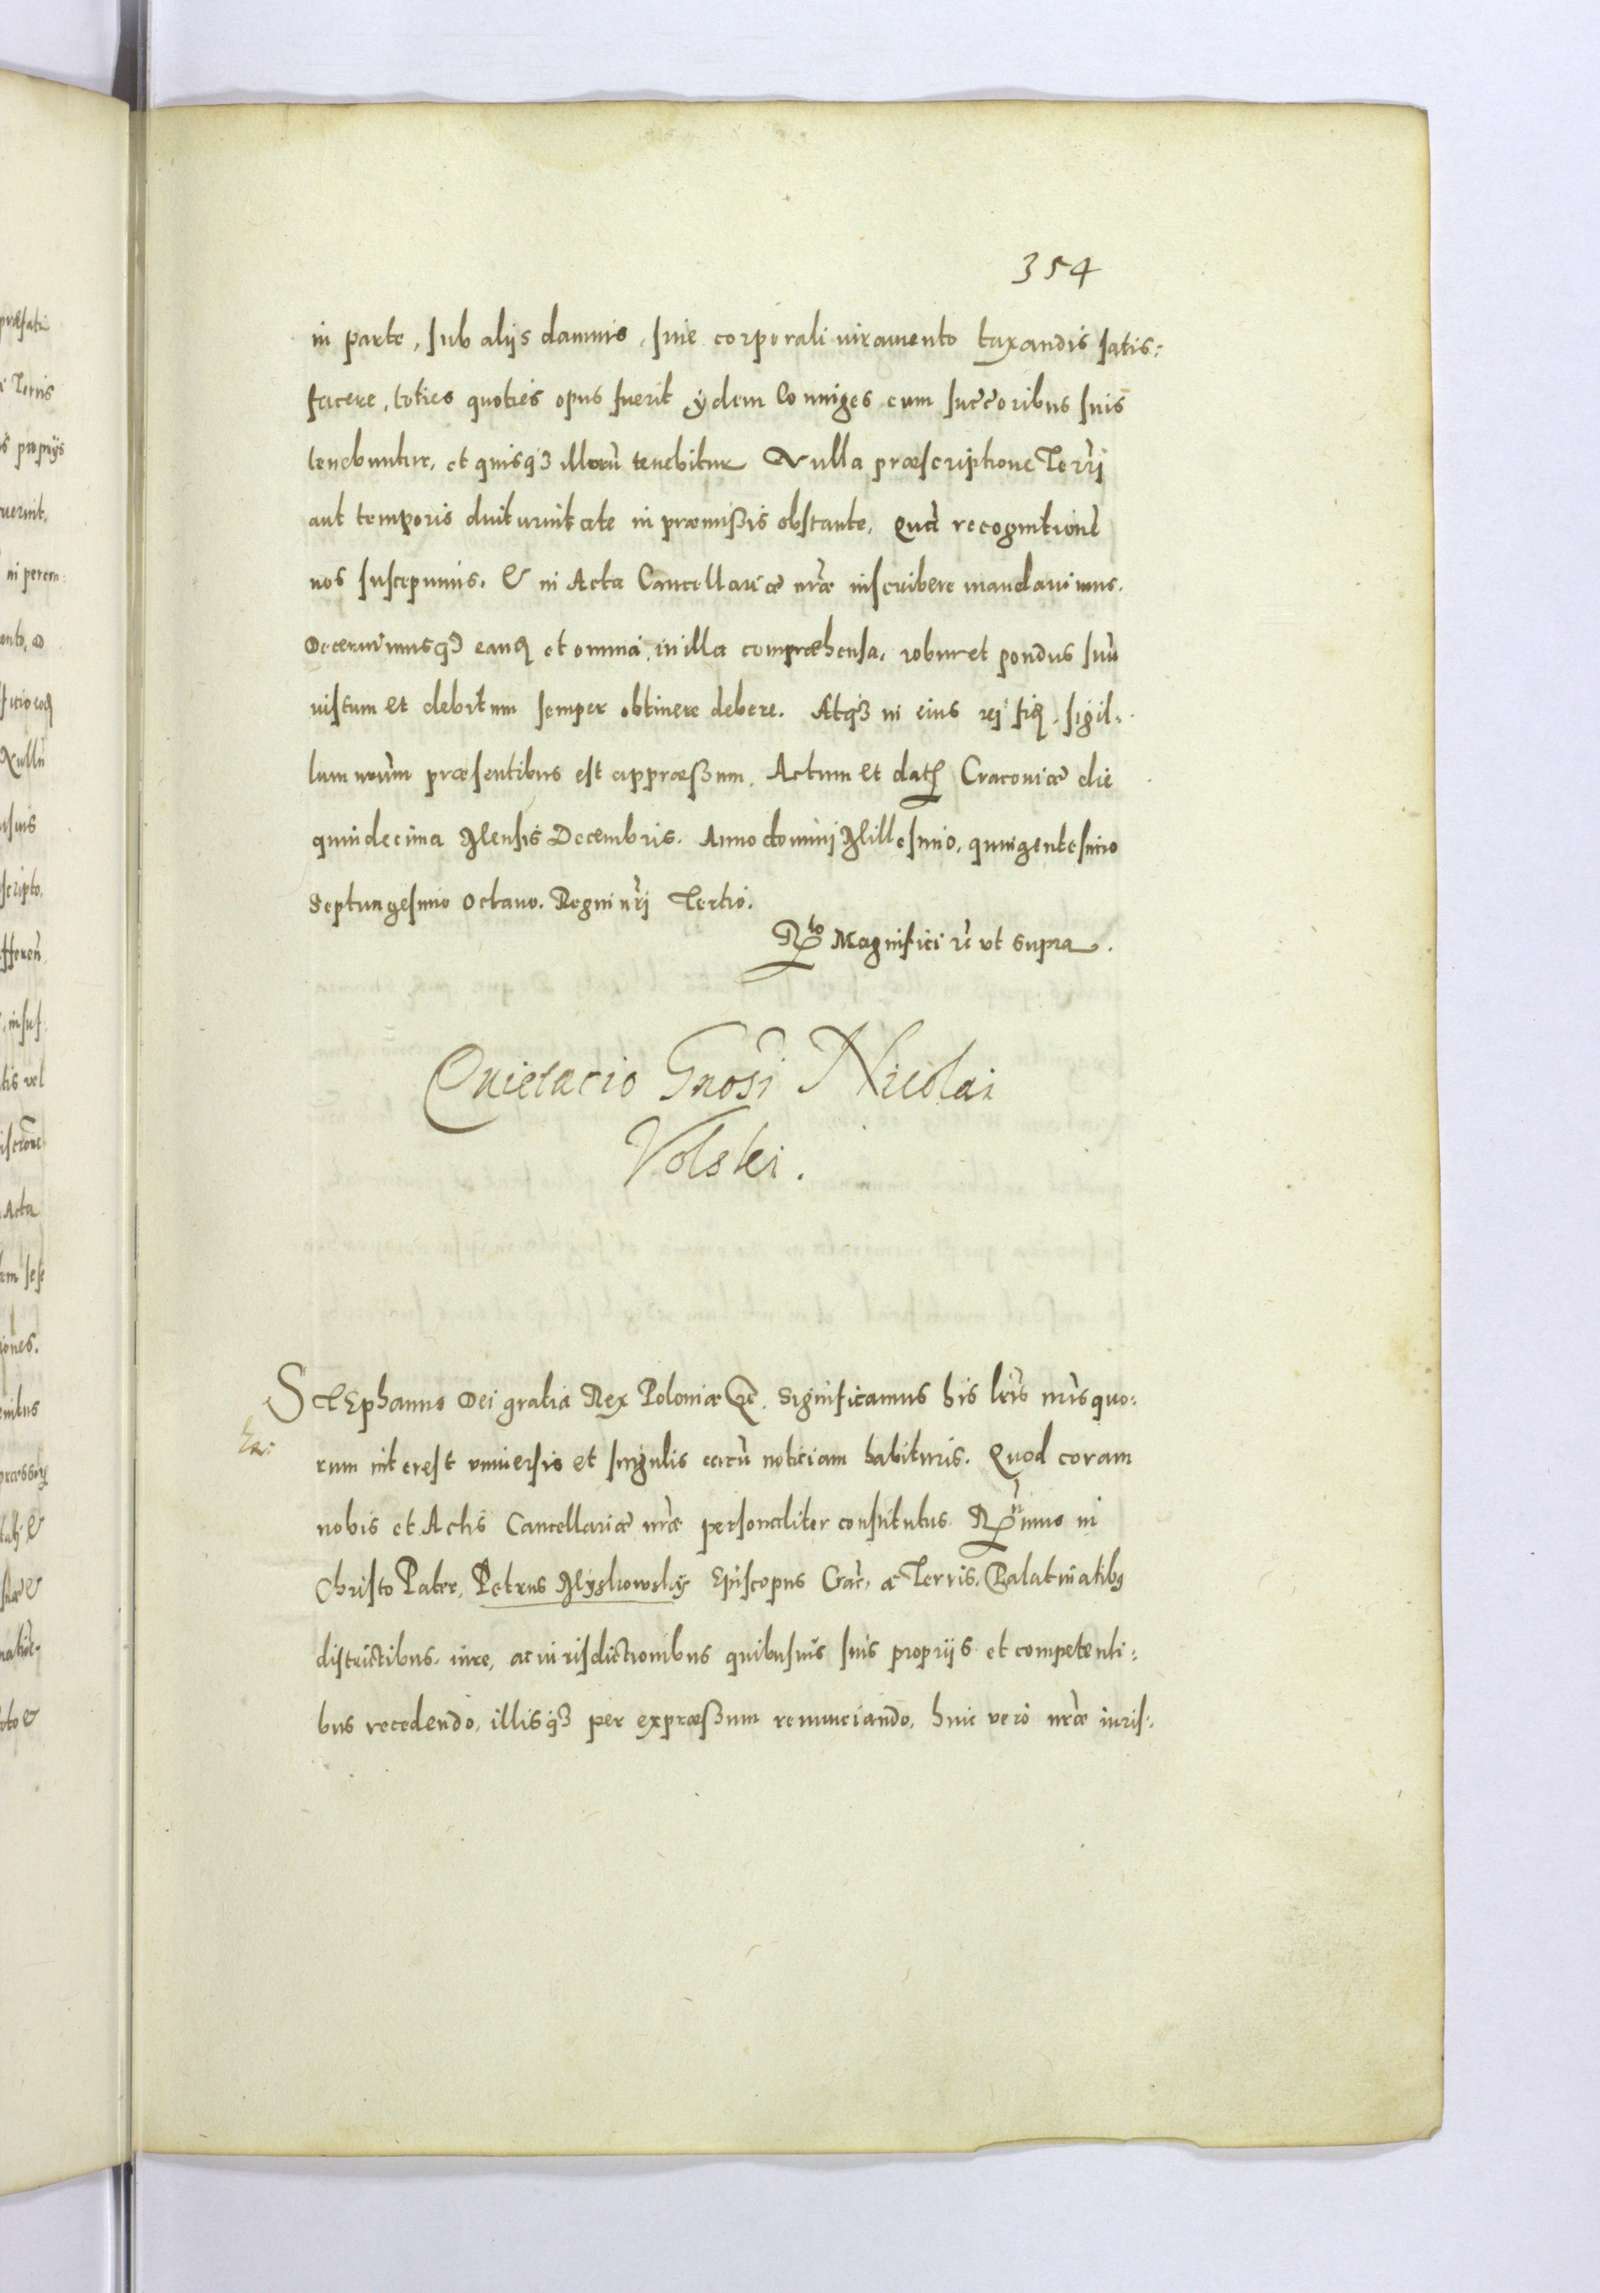 354
in parte, sub alijs damnis, sine corporali iuramento taxandis satis:
facere, toties quoties opus fuerit ydem Coniuges cum succ̄oribus suis
tenebuntur, et quisq3 illorū tenebitur Nulla præscriptione Terr̄j
aut temporis diuturnitate in præmißis obstante. Quā recognitionē
nos suscepimus. & in Acta Cancellariæ nr̄æ inscribere mandauimus.
Decernimusq3 eanq et omnia in illa compræhensa, robur et pondus suū
iustum et debitum semper obtinere debere. Atq3 in eius rej fiq. sigil:
lum nr̄um præsentibus est appræßum. Actum et datq Cracouiæ die
quindecima Mensis Decembris. Anno domini Millesimo, quingentesimo
Septuagesimo Octauo. Regni nr̄j Tertio.
Rto Magnifici rē vt supra.
Quietacio Gnosi Nicolai
Volski.
Stephanus Dei gratia Rex Poloniæ &c. Significamus his lr̄is nr̄is quo:
rum interest vniuersis et singulis earū noticiam habituris. Quod coram
nobis et Actis Cancellariæ nr̄æ personaliter constitutus Rnimus in
Christo Pater, Petrus Myszkowskÿ Episcopus Crac̄. a Terris, Palatinatibq
districtibus, iure, ac iurisdictionibus quibusuis suis proprijs et competenti:
bus recedendo, illisq3 per expræßum renunciando, huic vero nr̄æ iuris: